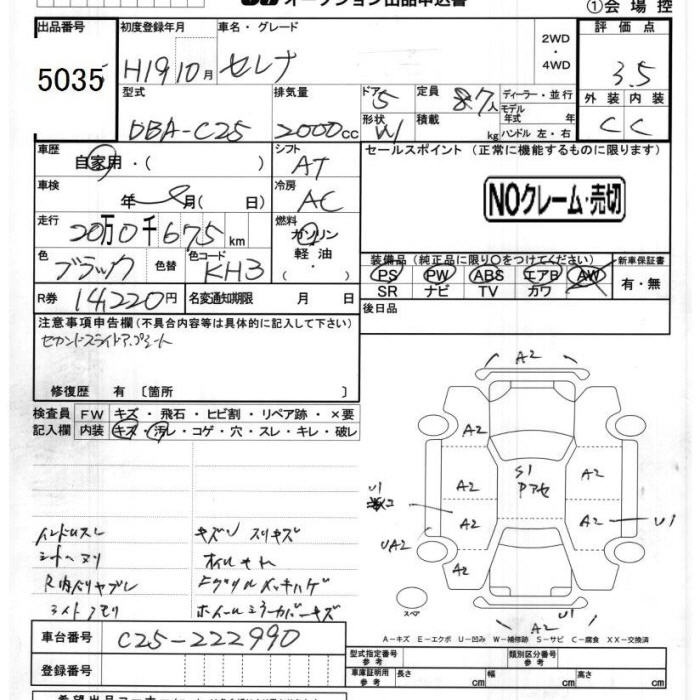 オークション出品申込書
①会場控
出品番号 初度登録年月 車名・グレード 2WD・4WD 評価点
5035 H19 10月 セレナ 3.5
型式 排気量 ドア 定員 ディーラー・並行
DBA-C25 2000cc 5 7人 モデル年式 年
形状 W 積載 kg ハンドル 左・右
外装 内装
C C
車歴 自家用・( ) シフト AT
セールスポイント (正常に機能するものに限ります)
車検 年 月( 日) 冷房 AC
NOクレーム・売切
走行 20万0千675km 燃料 ガソリン・軽油・( )
色 ブラック 色替 色コード KH3
装備品 (純正品に限り○をつけてください) 新車保証書
PS PW ABS エアB AW 有・無
SR ナビ TV カワ
R券 14,220円 名変通知期限 月 日
後日品
注意事項申告欄(不具合内容等は具体的に記入して下さい)
修復歴 有 〔箇所 〕
検査員 FW キズ・飛石・ヒビ割・リペア跡・×要
記入欄 内装 キズ・汚レ・コゲ・穴・スレ・キレ・破レ
キズU スリキズ
A2
A2
S1
A2
A2
U1
A2
A2
U1
UA2
A2
スペア
U1
A2
A-キズ E-エクボ U-凹み W-補修跡 S-サビ C-腐食 XX-交換済
車台番号 C25-222990
登録番号
型式指定番号 参考 類別区分番号 参考
車庫証明用 参考 長さ cm 幅 cm 高さ cm